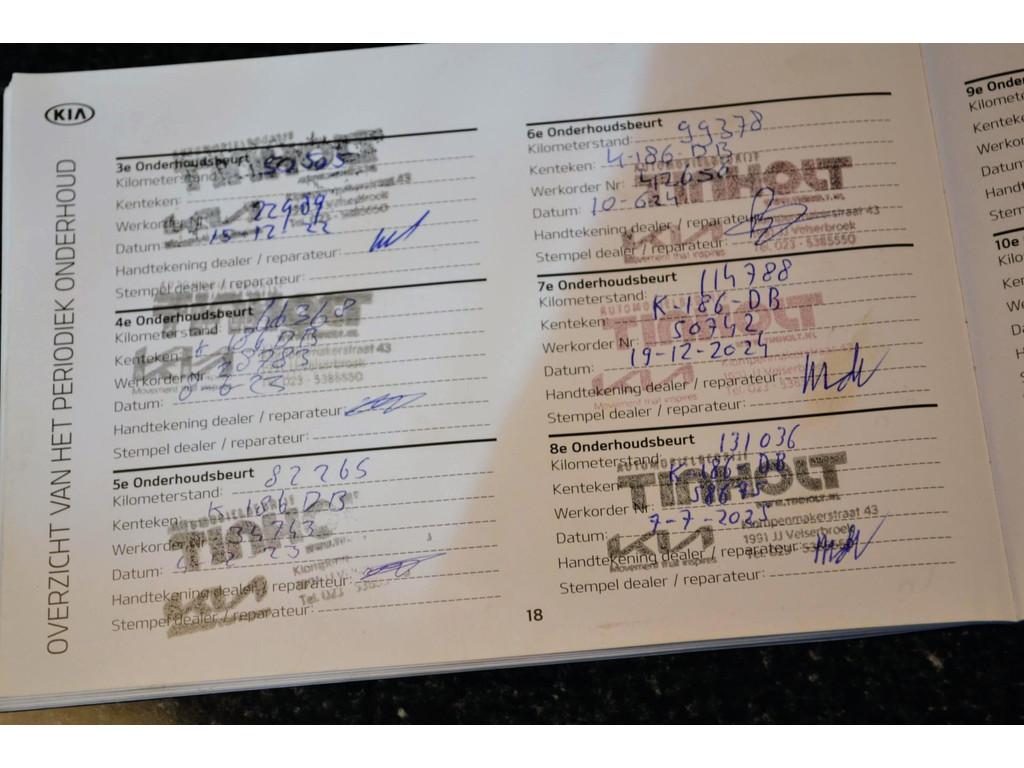 KIA
OVERZICHT VAN HET PERIODIEK ONDERHOUD
3e Onderhoudsbeurt
Kilometerstand: 50505
Kenteken:
Werkorder Nr: 22909
Datum: 15-12-22
Handtekening dealer / reparateur:
Stempel dealer / reparateur:
4e Onderhoudsbeurt
Kilometerstand: 66368
Kenteken: K 186 DB
Werkorder Nr:
Datum:
Handtekening dealer / reparateur:
Stempel dealer / reparateur:
Klompenmakerstraat 43
023 - 5385550
Movement that inspires
5e Onderhoudsbeurt
Kilometerstand: 82265
Kenteken: K 186 DB
Werkorder Nr: 34743
Datum:
Handtekening dealer / reparateur:
Stempel dealer / reparateur:
18
6e Onderhoudsbeurt
Kilometerstand: 99378
Kenteken: 4-186 DB
Werkorder Nr: 42650
Datum: 10-6-24
Handtekening dealer / reparateur:
Stempel dealer / reparateur:
TINHOLT
Klompenmakerstraat 43
1991 JJ Velserbroek
Tel. 023 - 5385550
Movement that inspires
7e Onderhoudsbeurt
Kilometerstand: 114788
Kenteken: K-186-DB
Werkorder Nr: 50742
Datum: 19-12-2024
Handtekening dealer / reparateur:
Stempel dealer / reparateur:
AUTOMOBIELBEDRIJF
TINHOLT
WWW.TINHOLT.NL
Movement that inspires
8e Onderhoudsbeurt
Kilometerstand: 131036
Kenteken: K-186 DB
Werkorder Nr: 58695
Datum: 7-7-2025
Handtekening dealer / reparateur:
Stempel dealer / reparateur:
AUTOMOBIELBEDRIJF
TINHOLT
WWW.TINHOLT.NL
Klompenmakerstraat 43
1991 JJ Velserbroek
Movement that inspires
9e Onde
Kilometerst
Kenteke
Werko
Datum
Handt
Stemp
10e
Kilo
Ken
We
Da